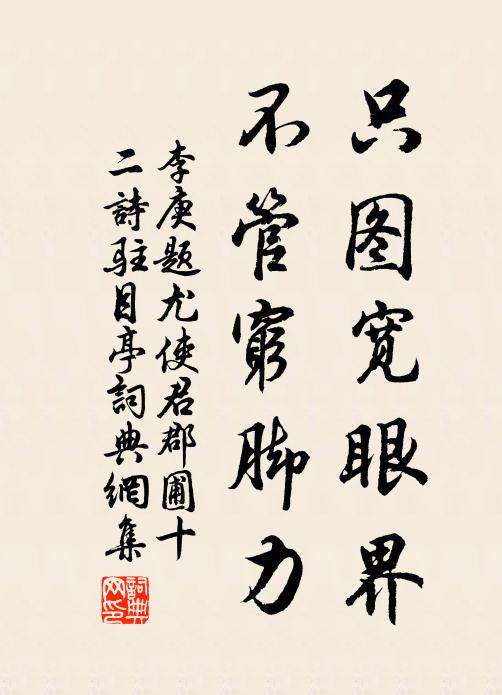 只图宽眼界
不管穷脚力
李庚题尤使君郡圃十
二詩駐目亭詞典網集
詞典
网印